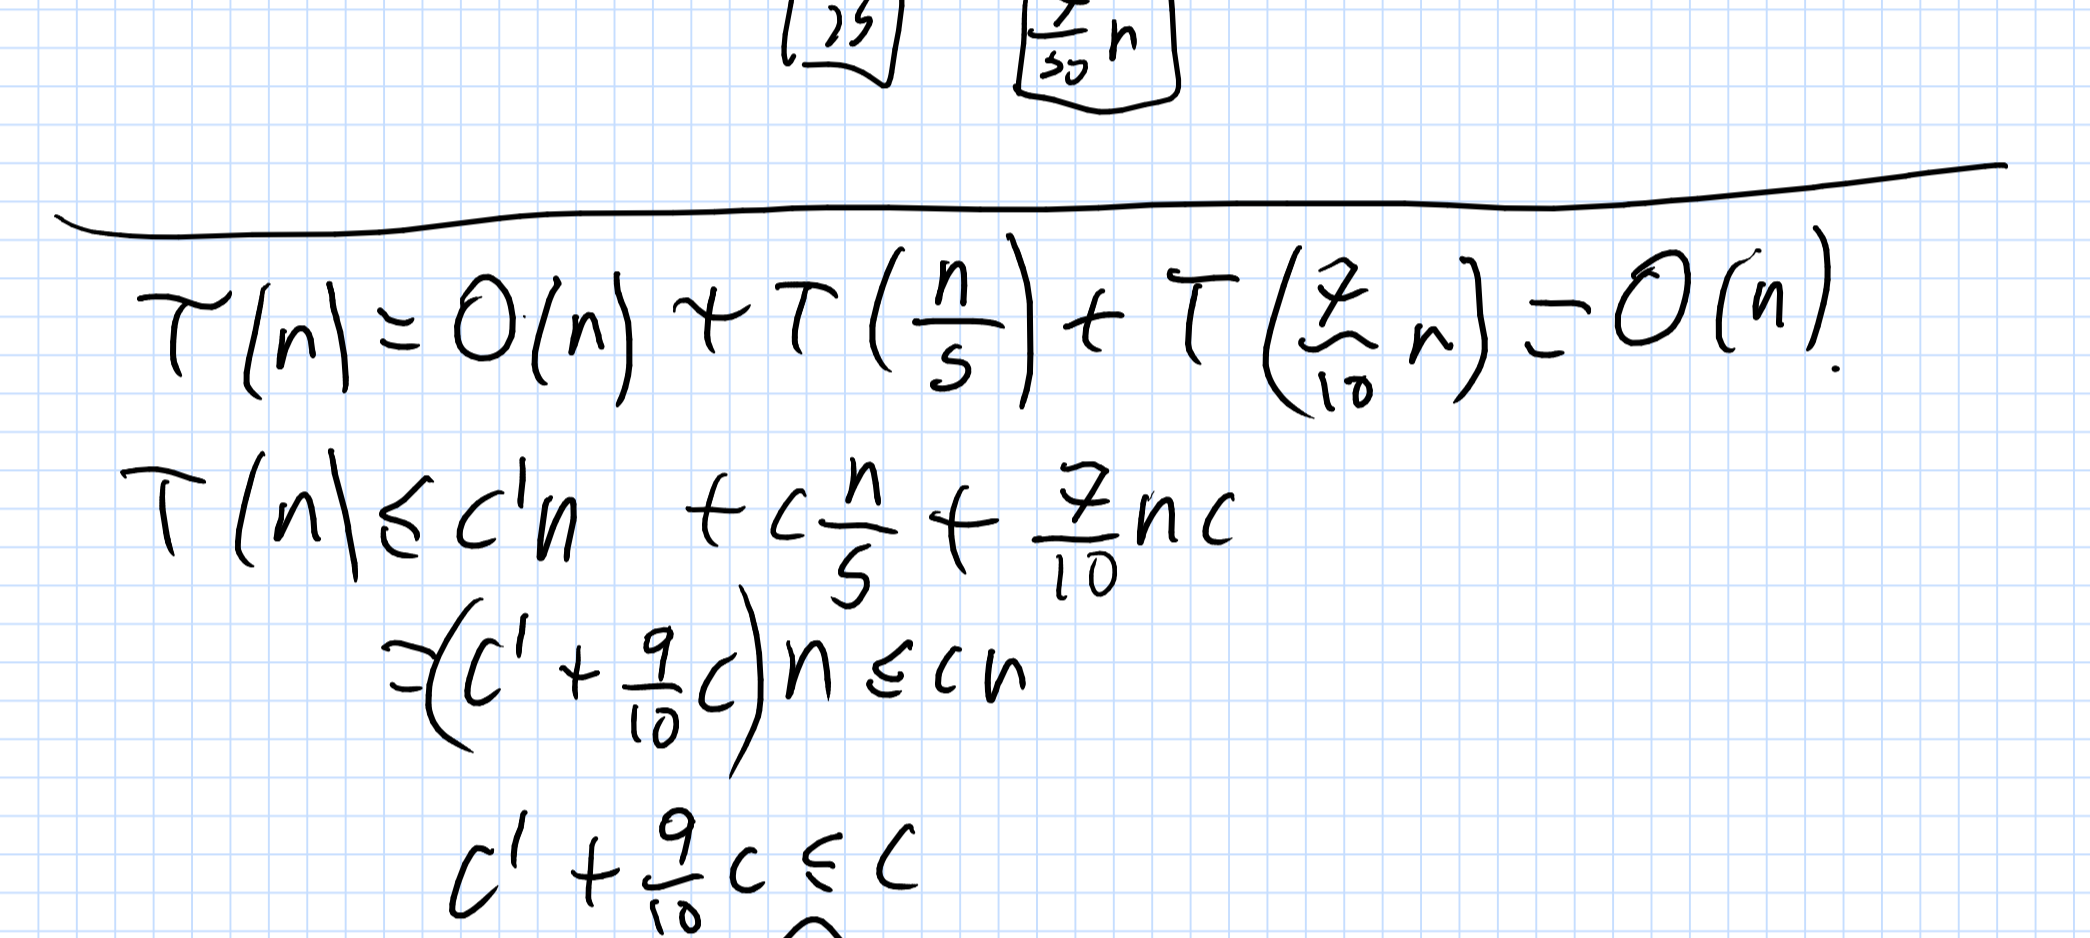 25 7/50 n
T(n) = O(n) + T(n/5) + T(7/10 n) = O(n).
T(n) ≤ c'n + c n/5 + 7/10 nc
= (c' + 9/10 c) n ≤ cn
c' + 9/10 c ≤ c